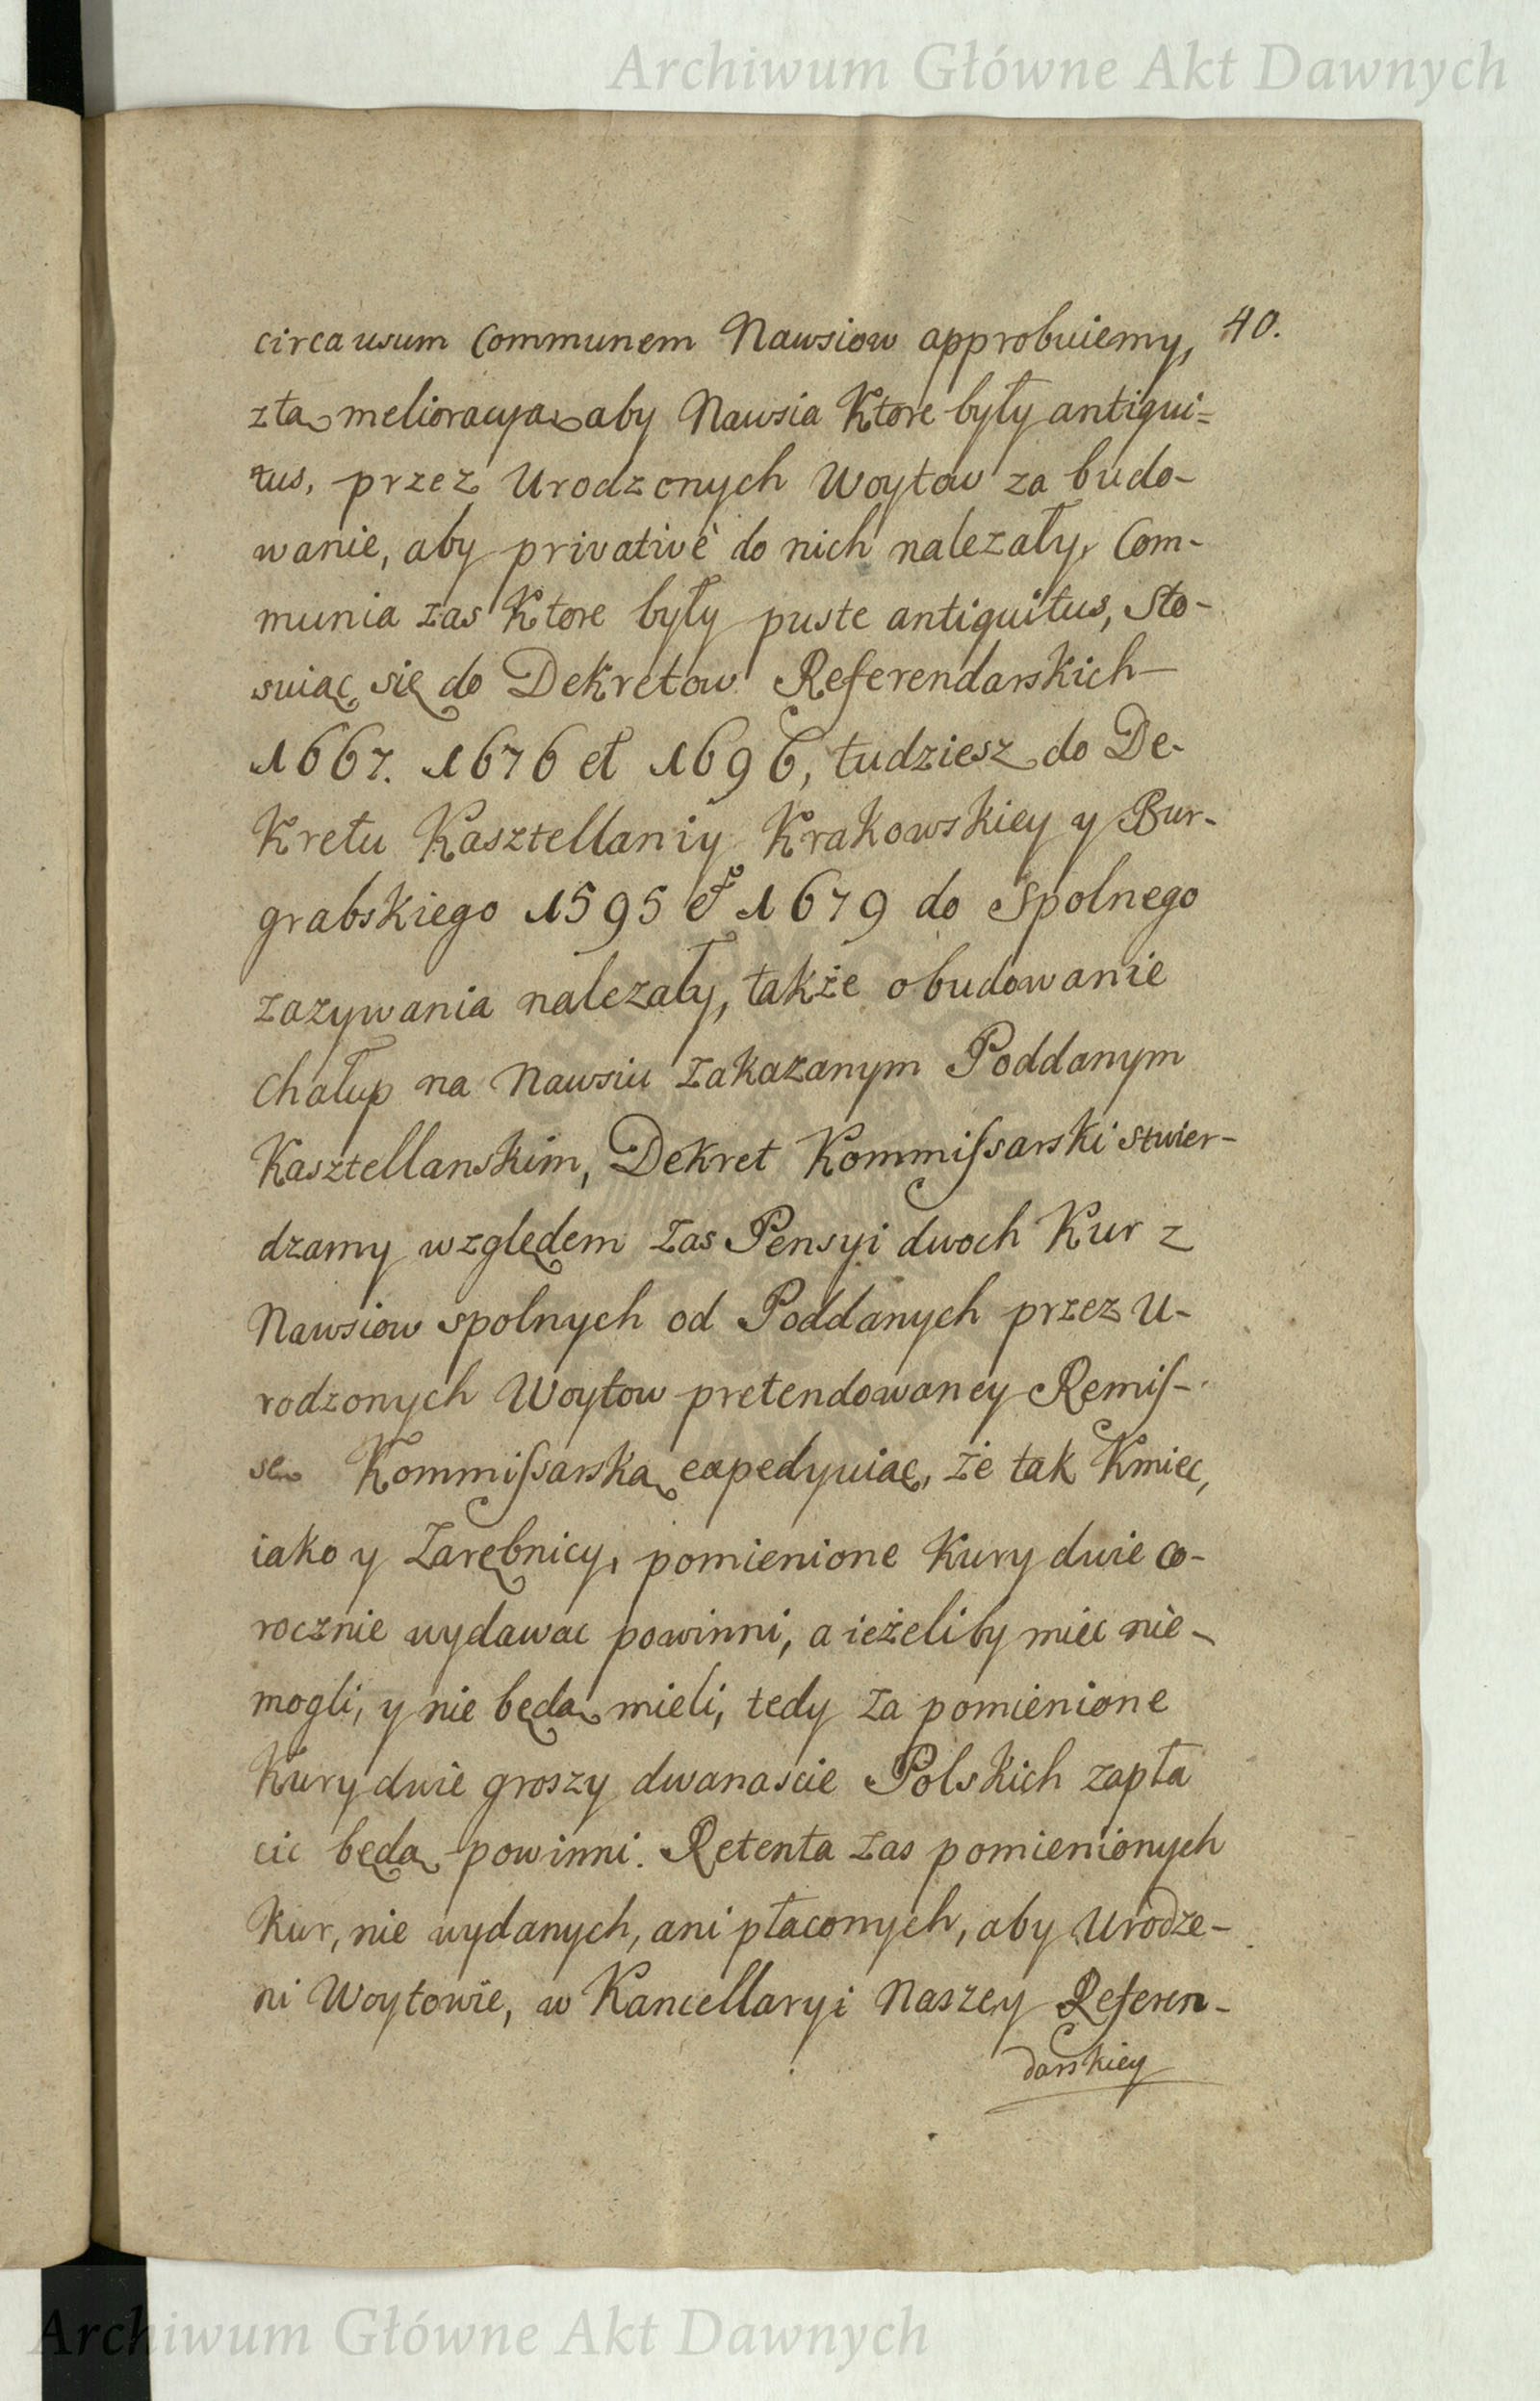 Archiwum Główne Akt Dawnych
40.
circa usum Communem Nawsiow approbuiemy,
z tą melioracyą aby Nawsia Ktore były antiqui=
tus, przez Urodzonych Woytow za budo-
wanie, aby privativè do nich nalezały, Com-
munia zas Ktore były puste antiquitus, Sto-
suiąc się do Dekretow Referendarskich
1667. 1676 et 1696, tudziesz do De-
Kretu Kasztellaniy Krakowskiey y Bur-
grabskiego 1595 et 1679 do Spolnego
zazywania nalezały, także obudowanie
Chałup na Nawsiu zakazanym Poddanym
Kasztellanskim, Dekret Kommiſsarski stwier-
dzamy względem zas Pensyi dwoch Kur z
Nawsiow spolnych od Poddanych przez U-
rodzonych Woytow pretendowaney Remiſ-
sę Kommiſsarską expedyuiąc, że tak Kmiec,
iako y Zarębnicy, pomienione Kury dwie co-
rocznie wydawac powinni, a ieżeliby miec nie-
mogli, y nie będą mieli, tedy za pomienione
Kury dwie groszy dwanascie Polskich zapła
cic będą powinni. Retenta zas pomienionych
Kur, nie wydanych, ani płaconych, aby Urodze-
ni Woytowie, w Kancellaryi Naszey Referen-
darskiey
Archiwum Główne Akt Dawnych